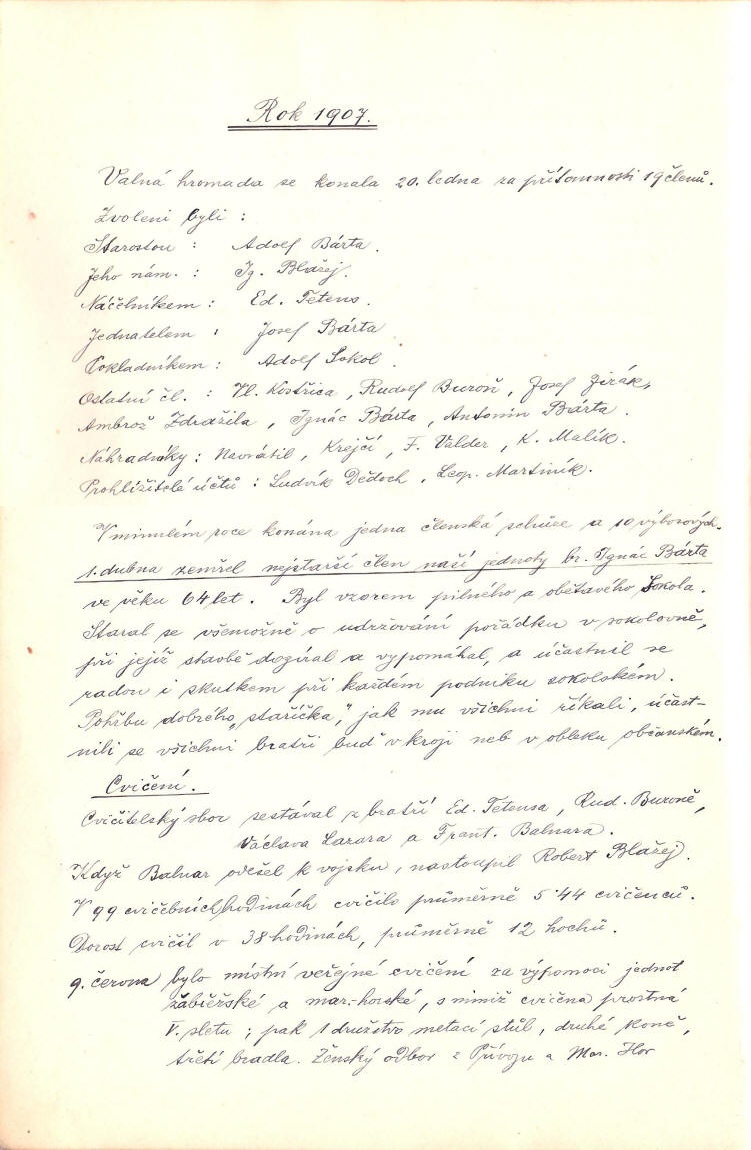 Rok 1907.
Valná hromada se konala 20. ledna za přítomnosti 19 členů.
Zvoleni byli :
Starostou : Adolf Bárta.
Jeho nám. : Ig. Blažej.
Náčelníkem : Ed. Tetens.
Jednatelem : Josef Bárta
Pokladníkem : Adolf Sokol.
Ostatní čl. : Vl. Kostřica, Rudolf Buroň, Josef Jirák,
Ambrož Zdražila, Ignác Bárta, Antonín Bárta.
Náhradníky : Navrátil, Krejčí, F. Valder, K. Malík.
Prohlížitelé účtů : Ludvík Dědoch, Leop. Martiník.
V minulém roce konána jedna členská schůze a 10 výborových.
1. dubna zemřel nejstarší člen naší jednoty br. Ignác Bárta
ve věku 64 let. Byl vzorem pilného a obětavého Sokola.
Staral se všemožně o udržování pořádku v sokolovně,
při jejíž stavbě dozíral a vypomáhal, a účastnil se
radou i skutkem při každém podniku sokolském.
Pohřbu dobrého „stařička," jak mu všichni říkali, účast-
nili se všichni bratři buď v kroji neb v obleku občanském.
Cvičení.
Cvičitelský sbor sestával z bratří Ed. Tetensa, Rud. Buroně,
Václava Lazara a Frant. Balnara.
Když Balnar odešel k vojsku, nastoupil Robert Blažej.
V 99 cvičebních hodinách cvičilo průměrně 5·44 cvičenců.
Dorost cvičil v 38 hodinách, průměrně 12 hochů.
9. června bylo místní veřejné cvičení za výpomoci jednot
zábřežské a mar.-horské, s nimiž cvičena prostná
V. sletu ; pak 1 družstvo metací stůl, druhé koně,
třetí bradla. Ženský odbor z Přívozu a Mar. Hor